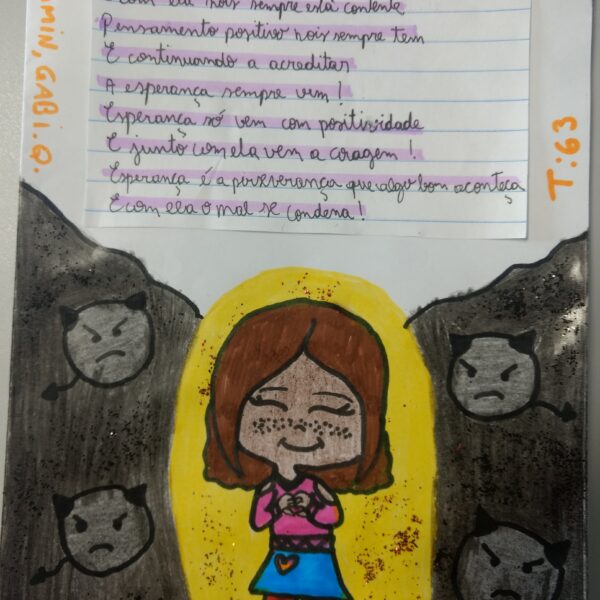 sempre está contente
Pensamento positivo nois sempre tem
E continuando a acreditar
A esperança sempre vem!
Esperança só vem com positividade
E junto com ela vem a coragem!
Esperança é a perseverança que algo bom aconteça
E com ela o mal se condena!
MIN, GABI.Q.
T:63